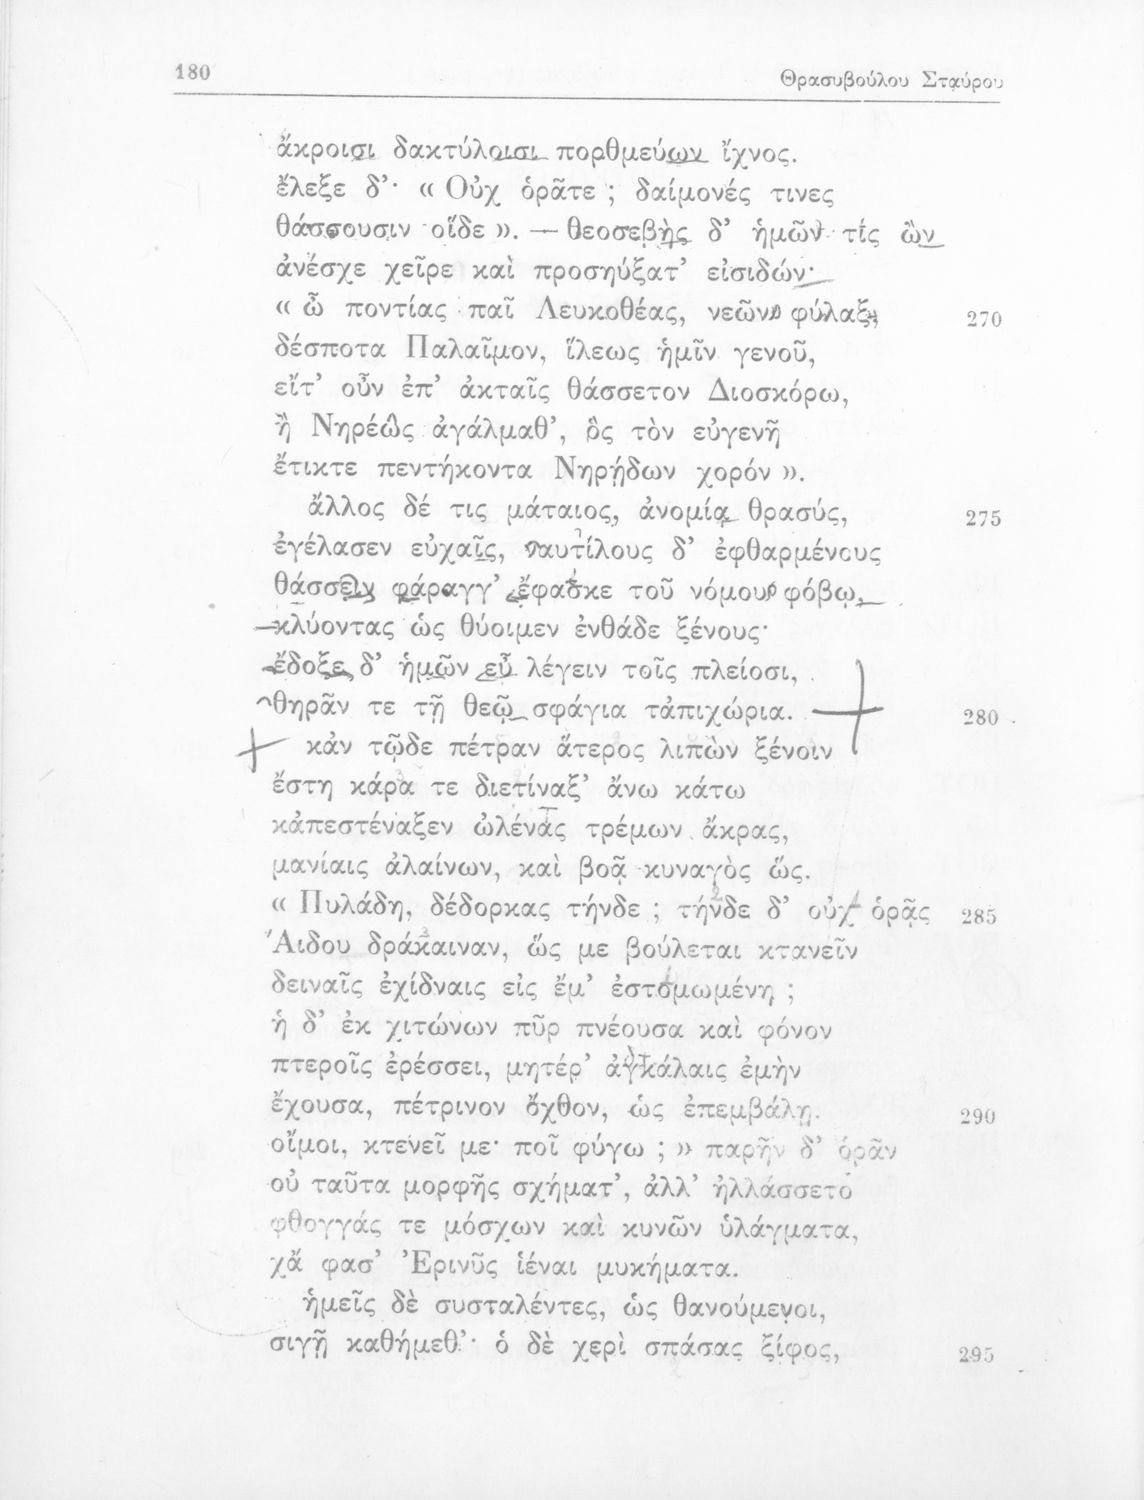 180
Θρασυβούλου Σταύρου
ἄκροισι δακτύλοισι πορθμεύων ἴχνος.
ἔλεξε δ’· « Οὐχ ὁρᾶτε ; δαίμονές τινες
θάσσουσιν οἵδε ». — θεοσεβὴς δ’ ἡμῶν τίς ὢν
ἀνέσχε χεῖρε καὶ προσηύξατ’ εἰσιδών·
« ὦ ποντίας παῖ Λευκοθέας, νεῶν φύλαξ, 270
δέσποτα Παλαῖμον, ἵλεως ἡμῖν γενοῦ,
εἴτ’ οὖν ἐπ’ ἀκταῖς θάσσετον Διοσκόρω,
ἢ Νηρέως ἀγάλμαθ’, ὃς τὸν εὐγενῆ
ἔτικτε πεντήκοντα Νηρῄδων χορόν ».
ἄλλος δέ τις μάταιος, ἀνομίᾳ θρασύς, 275
ἐγέλασεν εὐχαῖς, ναυτίλους δ’ ἐφθαρμένους
θάσσειν φάραγγ’ ἔφασκε τοῦ νόμου φόβῳ,
κλύοντας ὡς θύοιμεν ἐνθάδε ξένους·
ἔδοξε δ’ ἡμῶν εὖ λέγειν τοῖς πλείοσι,
θηρᾶν τε τῇ θεῷ σφάγια τἀπιχώρια. 280
κἀν τῷδε πέτραν ἅτερος λιπὼν ξένοιν
ἔστη κάρα τε διετίναξ’ ἄνω κάτω
κἀπεστέναξεν ὠλένας τρέμων ἄκρας,
μανίαις ἀλαίνων, καὶ βοᾷ κυναγὸς ὥς.
« Πυλάδη, δέδορκας τήνδε ; τήνδε δ’ οὐχ ὁρᾷς 285
Ἅιδου δράκαιναν, ὥς με βούλεται κτανεῖν
δειναῖς ἐχίδναις εἰς ἔμ’ ἐστομωμένη ;
ἡ δ’ ἐκ χιτώνων πῦρ πνέουσα καὶ φόνον
πτεροῖς ἐρέσσει, μητέρ’ ἀγκάλαις ἐμὴν
ἔχουσα, πέτρινον ὄχθον, ὡς ἐπεμβάλῃ. 290
οἴμοι, κτενεῖ με· ποῖ φύγω ; » παρῆν δ’ ὁρᾶν
οὐ ταῦτα μορφῆς σχήματ’, ἀλλ’ ἠλλάσσετο
φθογγάς τε μόσχων καὶ κυνῶν ὑλάγματα,
χἄ φασ’ Ἐρινῦς ἱέναι μυκήματα.
ἡμεῖς δὲ συσταλέντες, ὡς θανούμενοι,
σιγῇ καθήμεθ’· ὁ δὲ χερὶ σπάσας ξίφος, 295